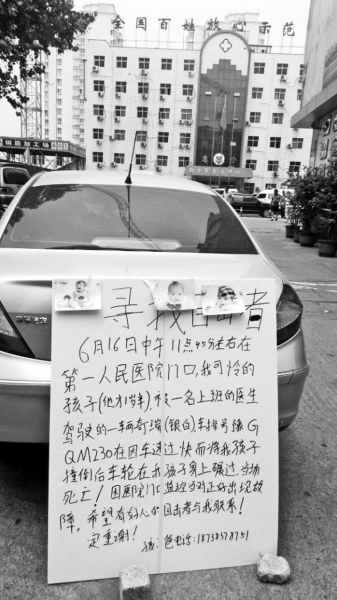 全国百姓放心示范
钢筋加工场
寻找目击者
6月16日中午11点45分左右在
第一人民医院门口,我可怜的
孩子(他才1岁半),被一名上班的医生
驾驶的一辆奇瑞(银白),车牌号豫G
QM230在因车速过快而将我孩子
撞倒后车轮在我孩子身上碾过当场
死亡!因医院门口监控当时正好出现故
障,希望有好心的目击者与我联系!
定重谢!
孩:爸电话:18738578751